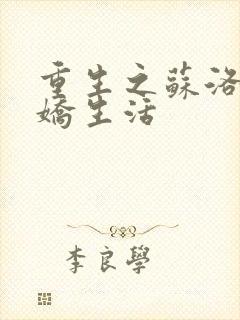 重生之蘇洛
嬌生活
李良學